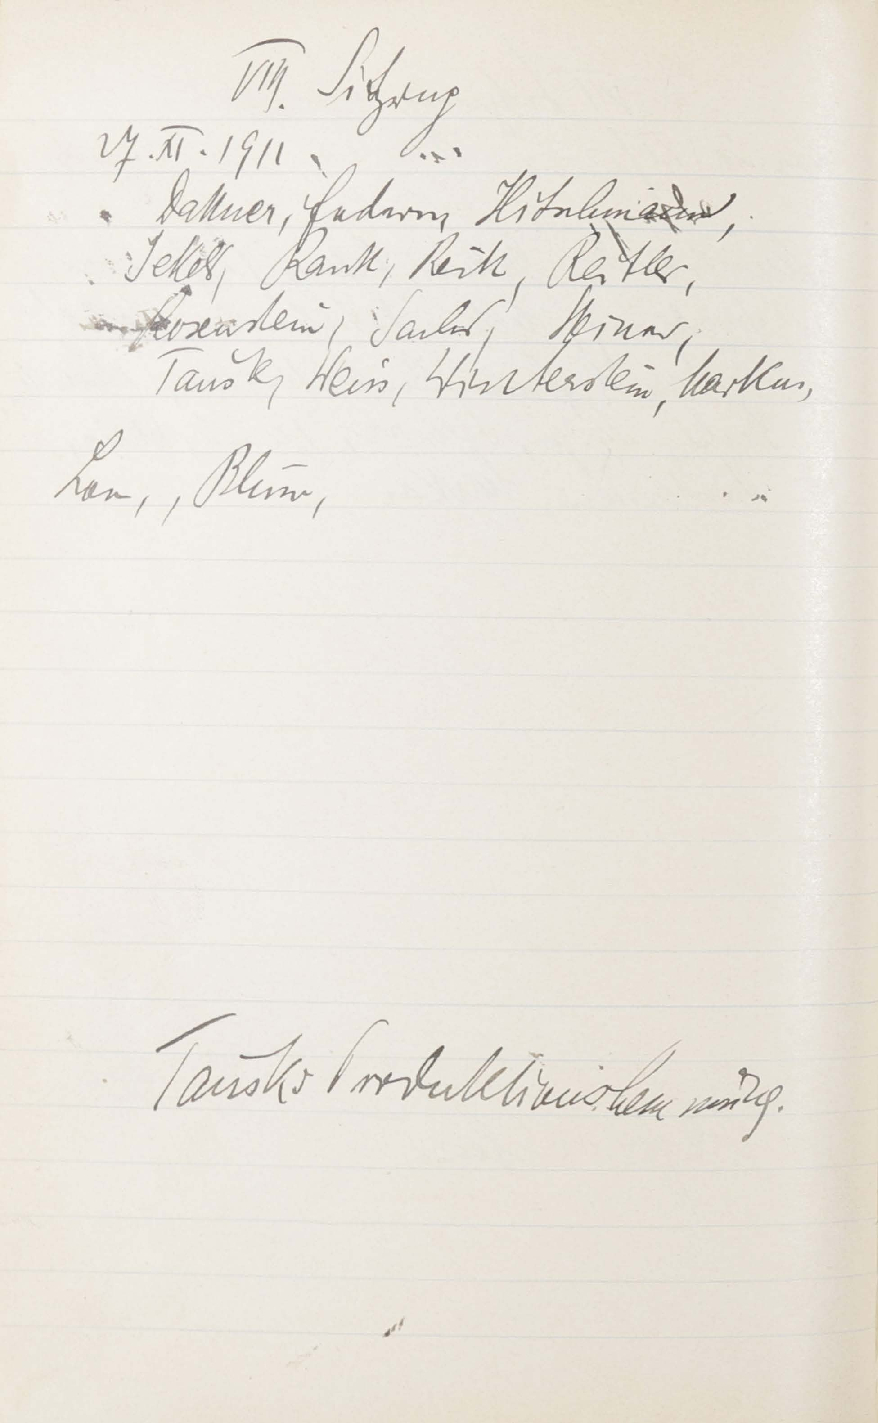 VIII. Sitzung
27.XI.1911
Dattner, Federn, Hitschmann,
Jekels, Rank, Reik, Reitler,
Rosenstein, Sachs, Steiner,
Tausk, Weiss, Winterstein, Markus,
Blum,
Tausks Produktionshemmung.